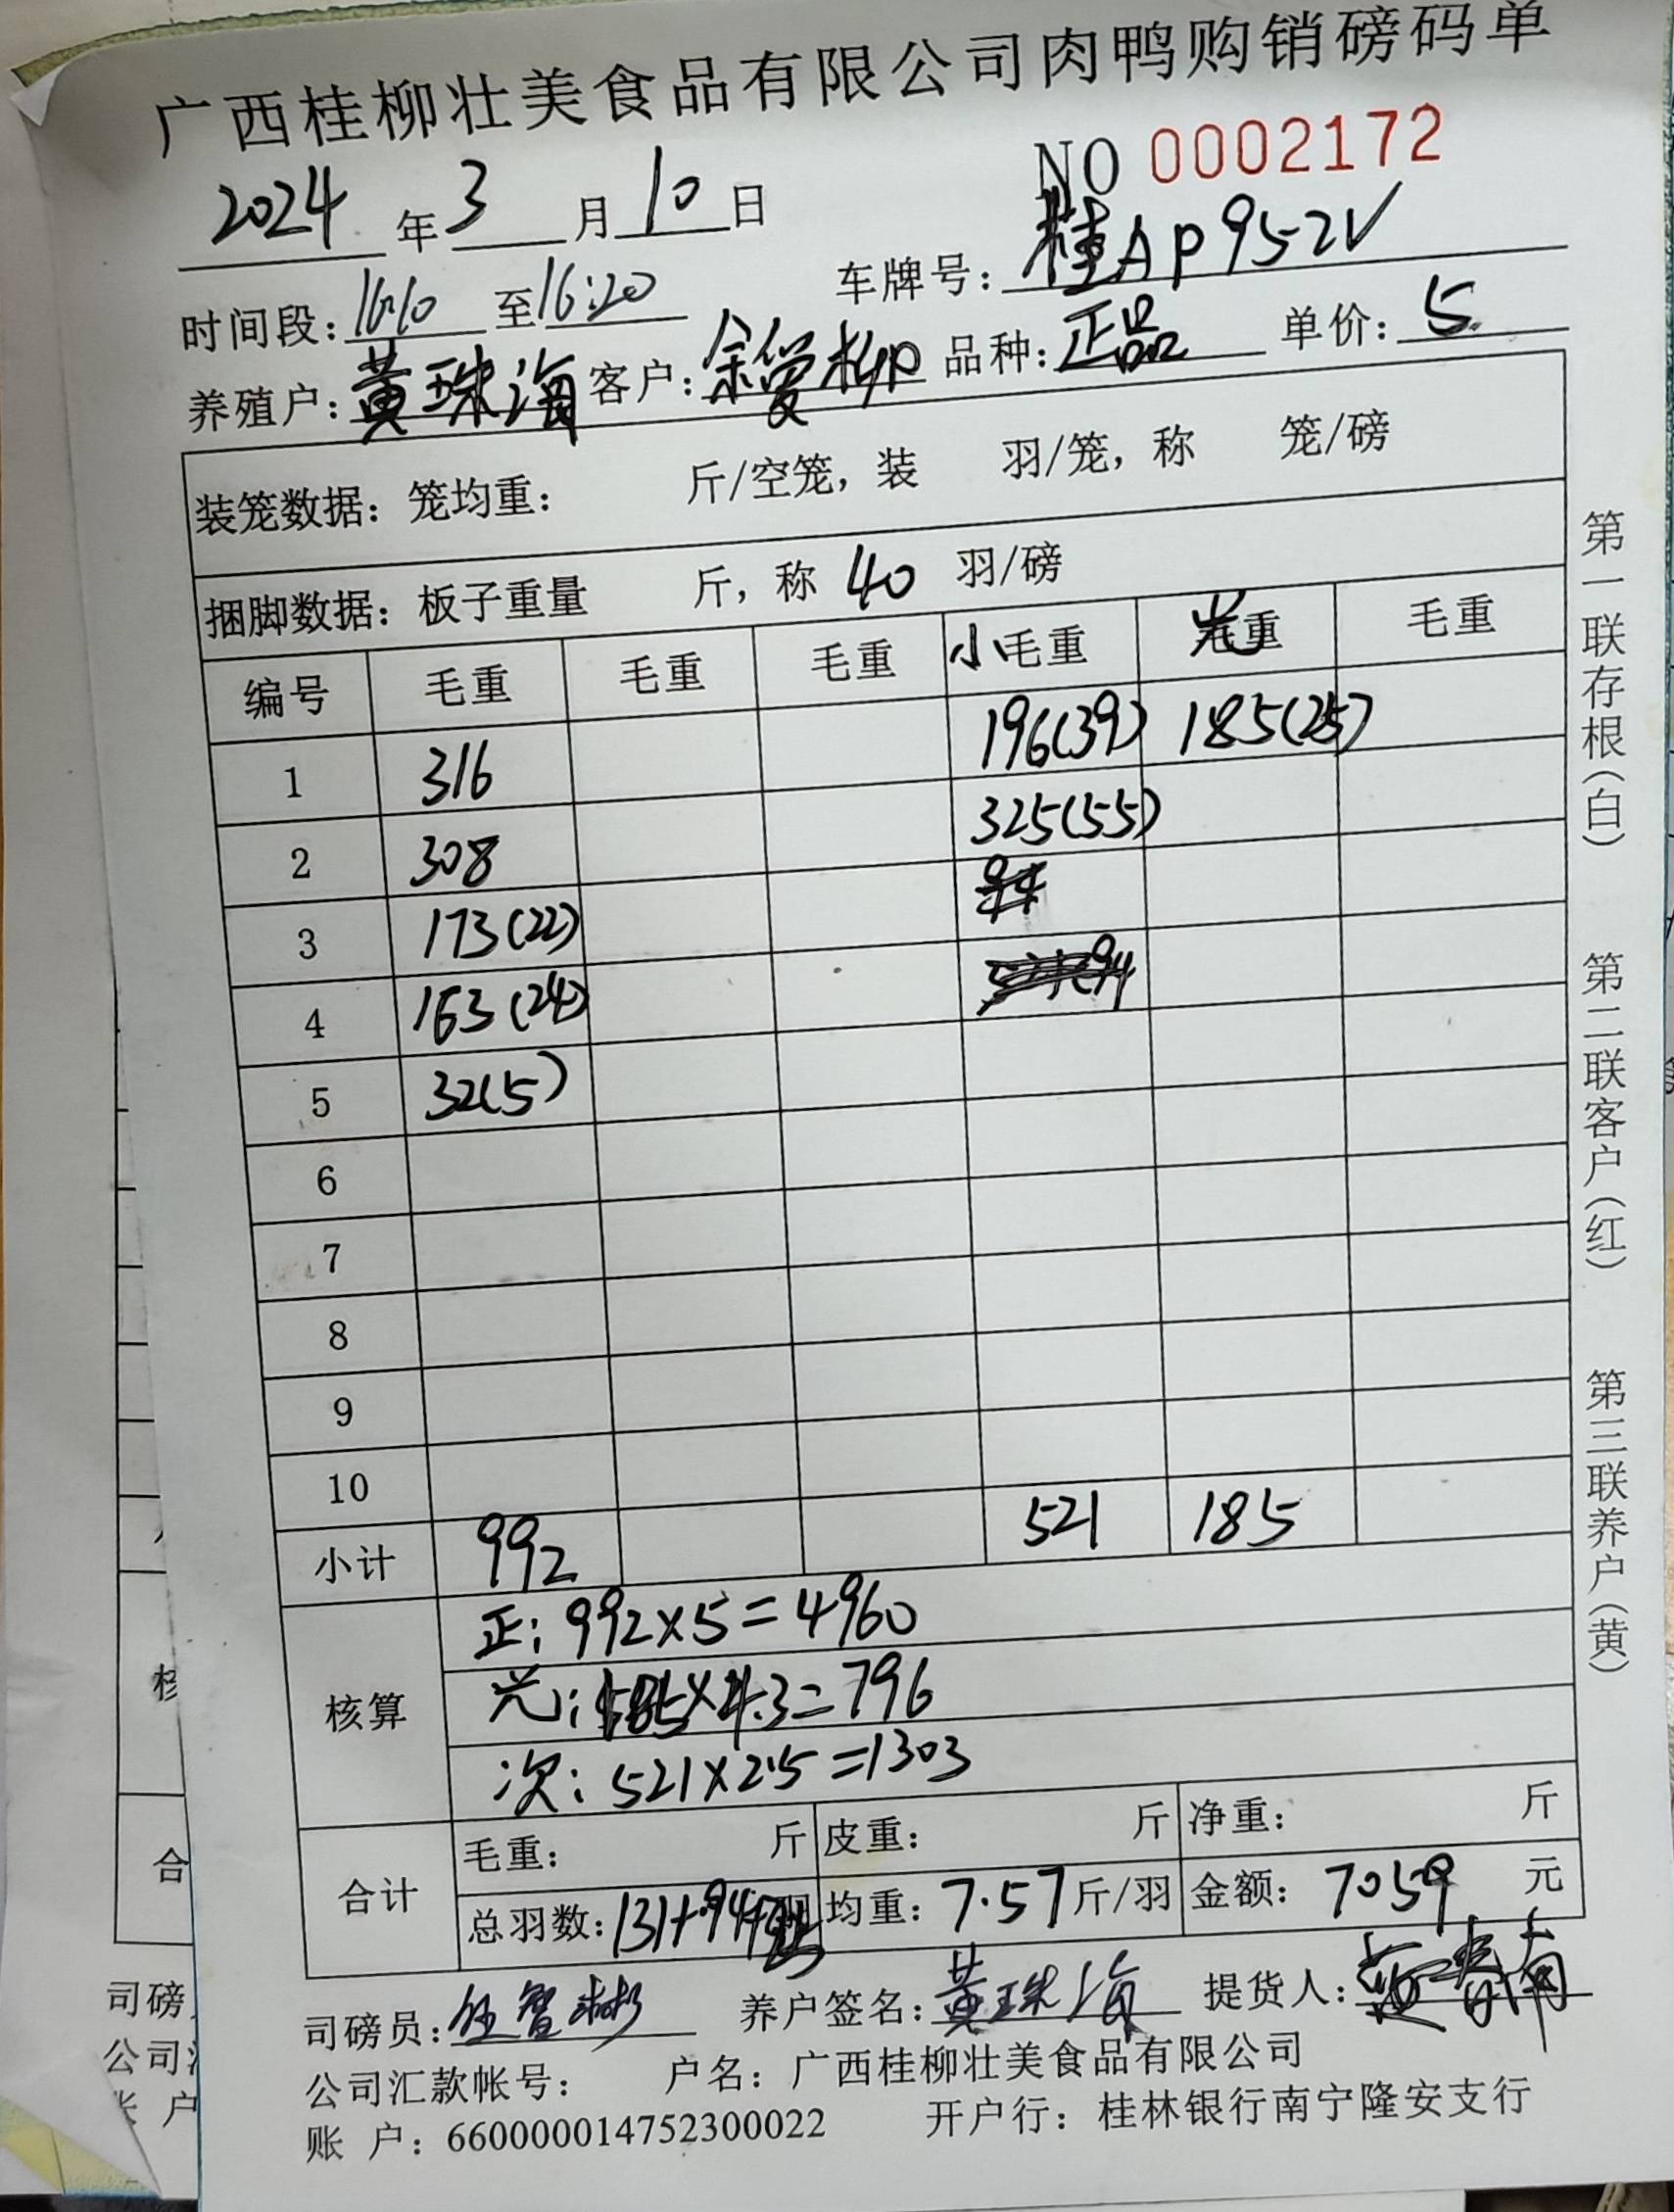 广西桂柳壮美食品有限公司肉鸭购销磅码单
NO 0002172
2024年3月10日
时间段：16:10至16:20 车牌号：桂AP952V
养殖户：黄珠海 客户：余爱柳 品种：正品 单价：5
装笼数据：笼均重： 斤/空笼，装 羽/笼，称 笼/磅
捆脚数据：板子重量 斤，称 40 羽/磅
编号 毛重 毛重 毛重 小毛重 光重 毛重
1 316 196(39) 185(25)
2 308 325(55)
3 173(22)
4 163(24) 94
5 32(5)
6
7
8
9
10
小计 992 521 185
核算 正：992×5=4960
光：185×4.3=796
次：521×2.5=1303
合计 毛重： 斤 皮重： 斤 净重： 斤
总羽数：131+94+ 均重：7.57斤/羽 金额：7059元
司磅员： 养户签名：黄珠海 提货人：
公司汇款帐号： 户名：广西桂柳壮美食品有限公司
账 户：660000014752300022 开户行：桂林银行南宁隆安支行
第一联存根（白） 第二联客户（红） 第三联养户（黄）
核
合
司磅
公司
户